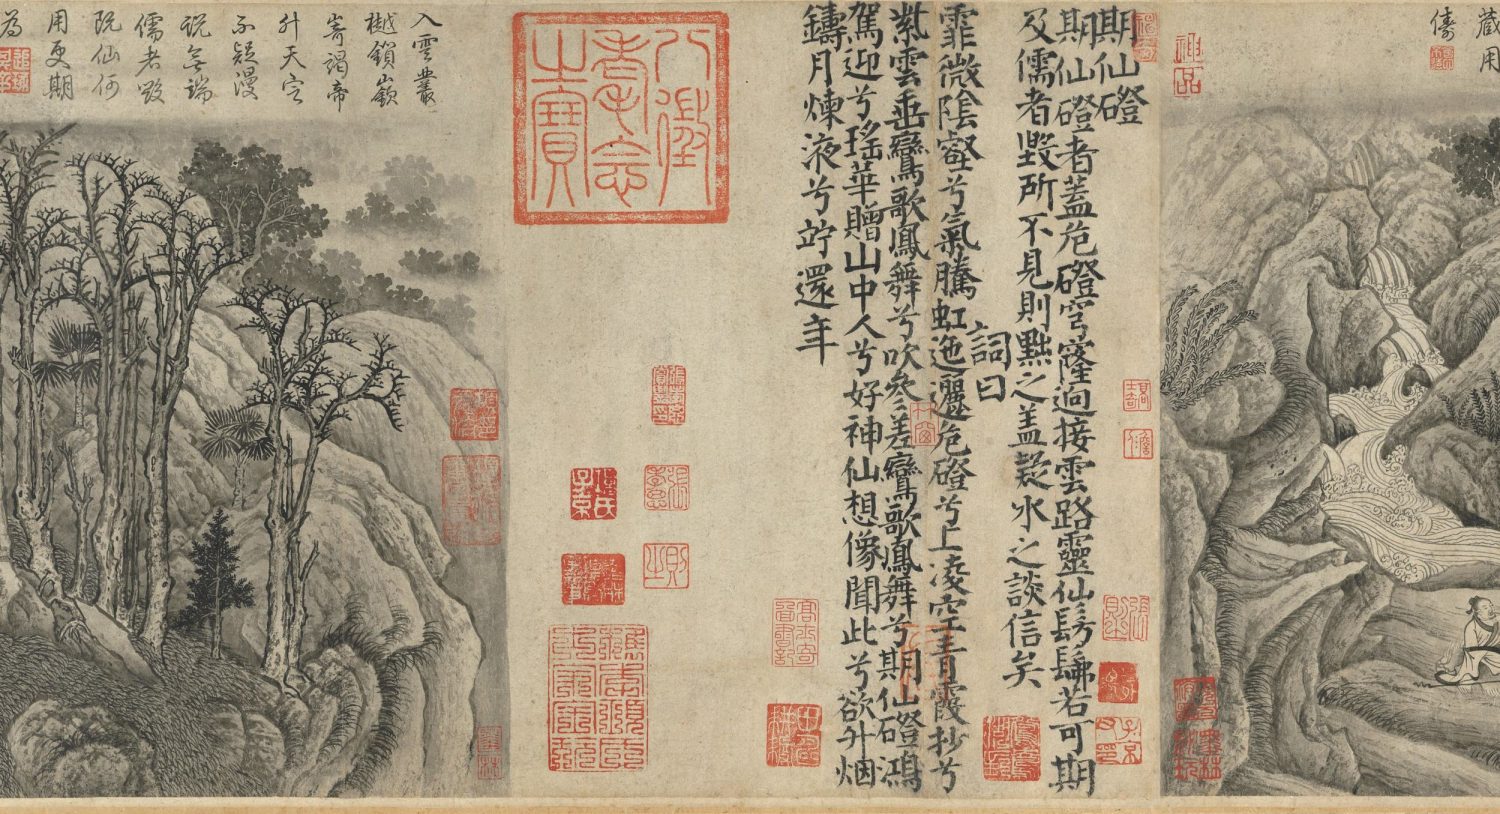 藏用
儔
神品
期仙磴
期仙磴者蓋危磴穹窿迥接雲路靈仙髣髴若可期
及儒者毀所不見則黜之蓋疑水之談信矣
詞曰
霏微陰壑兮氣騰虹迤邐危磴兮上凌空青霞抄兮
紫雲垂鸞歌鳳舞兮吹參差鸞歌鳳舞兮期仙磴鴻
駕迎兮瑤華贈山中人兮好神仙想像聞此兮欲升烟
鑄月煉液兮竚還年
八徵耄念之寶
入雲叢
樾鎖嵌
嵜謁帝
升天定
不疑漫
説無端
儒者毀
既仙何
用更期
為